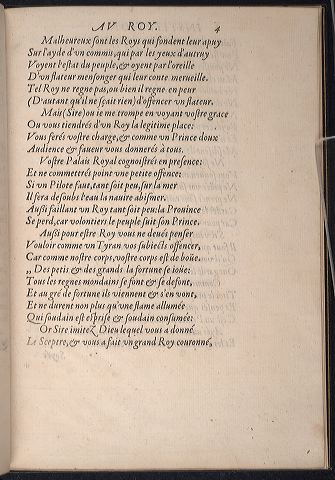 AV ROY. 4
Malheureux sont les Roys qui fondent leur apuy
Sur l'ayde d'vn commis, qui par les yeux d'autruy
Voyent l'estat du peuple, & oyent par l'oreille
D'vn flateur mensonger qui leur conte merueille.
Tel Roy ne regne pas, ou bien il regne en peur
(D'autant qu'il ne sçait rien) d'offencer vn flateur.
Mais (Sire) ou ie me trompe en voyant vostre grace
Ou vous tiendrés d'vn Roy la legitime place:
Vous ferés vostre charge, & comme vn Prince doux
Audience & faueur vous donnerés à tous.
Vostre Palais Royal cognoistrés en presence:
Et ne commettrés poinc vne petite offence:
Si vn Pilote faut, tant soit peu, sur la mer
Il fera dessoubs l'eau la nauire abismer.
Aussi faillant vn Roy tant soit peu: la Prouince
Se perd, car volontiers le peuple suit son Prince.
Aussi pour estre Roy vous ne deués penser
Vouloir comme vn Tyran vos subiects offencer,
Car comme nostre corps, vostre corps est de boüe.
„ Des petis & des grands la fortune se ioüe:
Tous les regnes mondains se font & se defont,
Et au gré de fortune ils viennent & s'en vont,
Et ne durent non plus qu'vne flame allumée
Qui soudain est esprise & soudain consumée:
Or Sire imitez Dieu lequel vous a donné
Le Sceptre, & vous a fait vn grand Roy couronné,